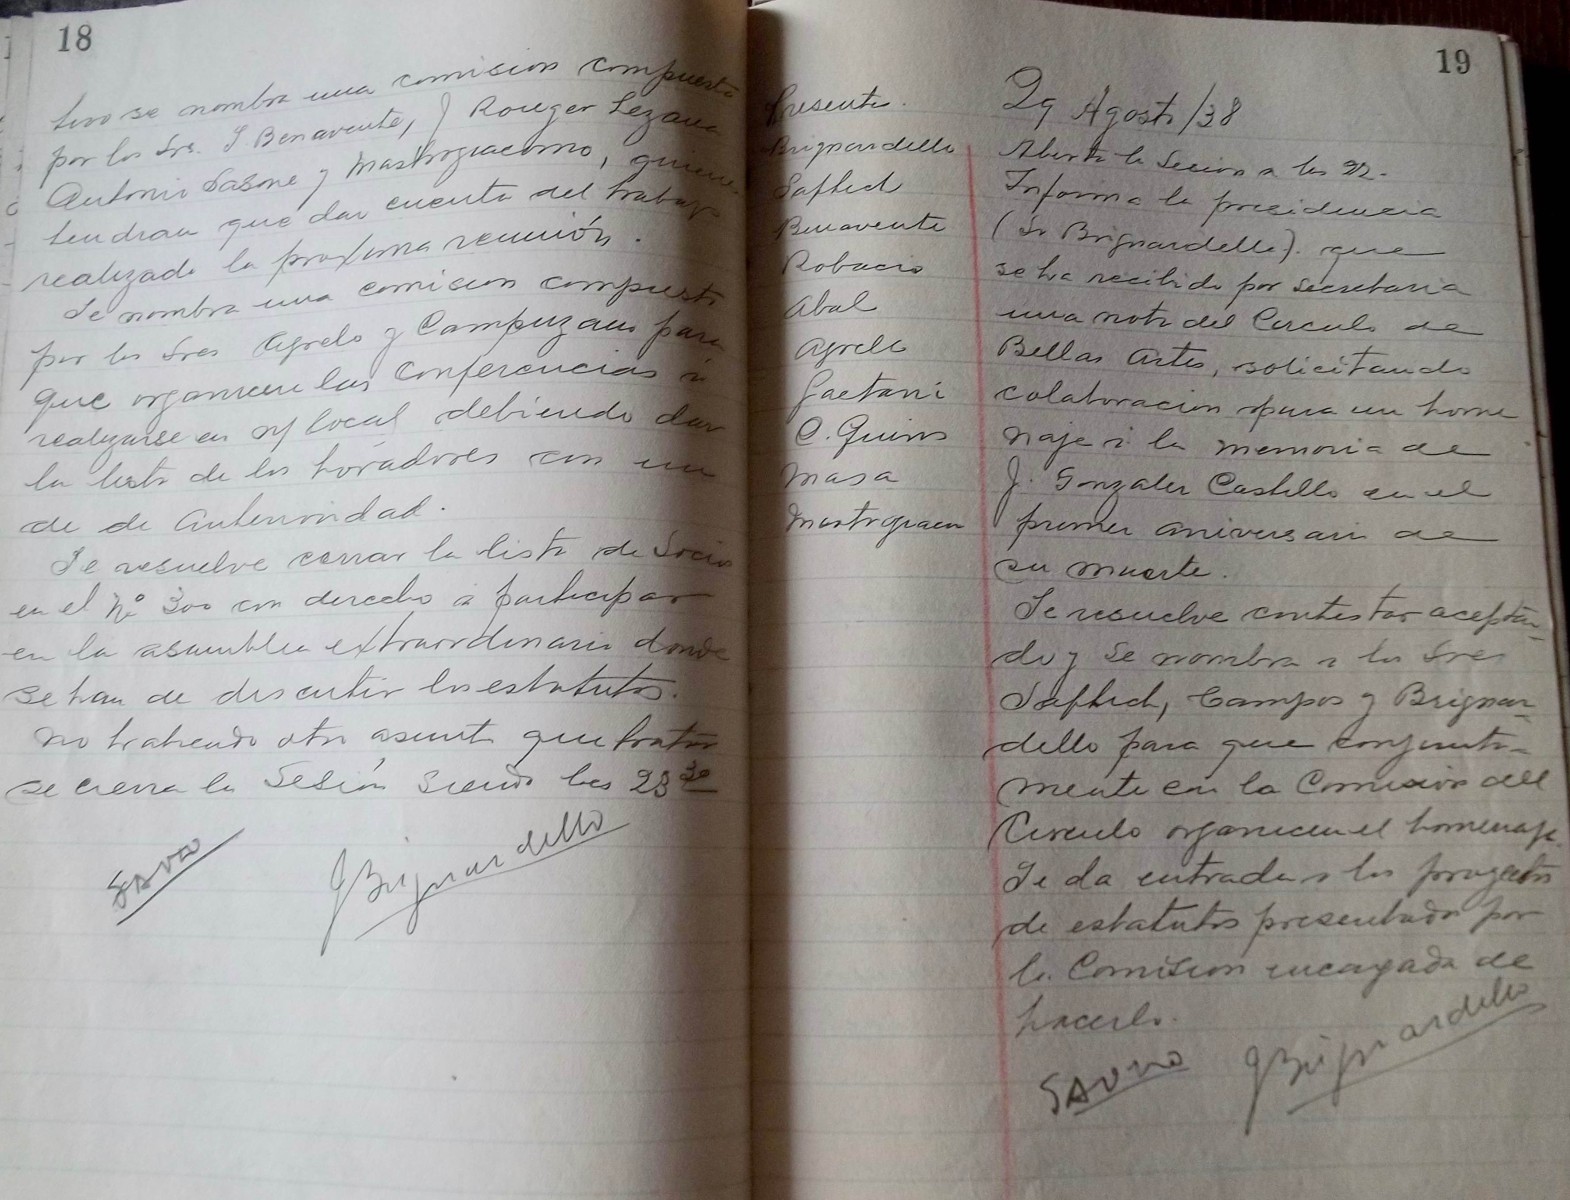 18
tivo se nombra una comision compuesta
por los Srs. J Benavente, J Rouger Lezana
Antonio Sasone y Mastrogiacomo, quienes
tendran que dar cuenta del trabajo
realizado la proxima reunión.
Se nombra una comision compuesta
por los Sres Agrelo y Campuzano para
que organicen las conferencias a
realizarse en n/ local debiendo dar
la lista de los horadores con un
de de anterioridad.
Se resuelve cerrar la lista de Socios
en el Nº 300 con derecho a participar
en la asamblea extraordinaria donde
se han de discutir los estatutos.
No habiendo otro asunto que tratar
se cierra la Sesión siendo las 23 30
Savio
JBrignardello
19
Presente.
Brignardello
Saffied
Benavente
Robacio
Abal
Agrelo
Gaetani
C. Quiros
Masa
Mastrogiaco
29 Agosto/38
Abierta la Secion a las 22.
Informa la presidencia
(Sr Brignardello). que
se ha recibido por secretaria
una nota del Circulo de
Bellas Artes, solicitando
colaboracion para un home
naje a la memoria de
J. Gonzalez Castillo en el
primer aniversario de
su muerte.
Se resuelve contestar aceptan-
do y se nombra a los Sres
Campos y Brignar-
dello para que conjunta-
mente con la Comision del
Circulo organicen el homenaje.
Se da entrada a los proyectos
de estatutos presentados por
la Comision encargada de
hacerlo.
Savio
JBrignardello